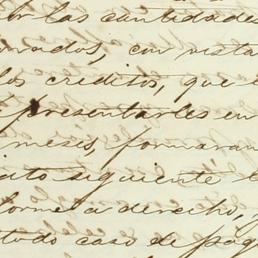 or las cantidades
rados, con vista
los creditos, que
presentarles en
meses, formaran
ato siguiente
forme a derecho,
todo caso de pag